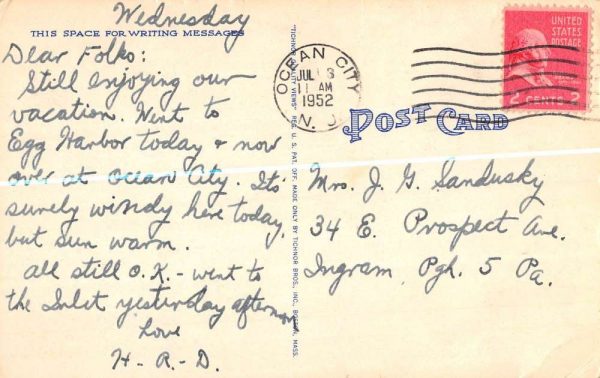 Wednesday
THIS SPACE FOR WRITING MESSAGES
Dear Folks:
Still enjoying our
vacation. Went to
Egg Harbor today & now
over at Ocean City. It's
surely windy here today,
but sun warm.
All still O.K. - went to
the Inlet yesterday afternoon
Love
H - R - D.
"TICHNOR QUALITY VIEWS" REG. U. S. PAT. OFF. MADE ONLY BY TICHNOR BROS., INC., BOSTON, MASS.
OCEAN CITY
JUL
11 AM
1952
N. J.
UNITED
STATES
POSTAGE
2 CENTS 2
POST CARD
Mrs. J. G. Sandusky
34 E. Prospect Ave.
Ingram, Pgh. 5 Pa.